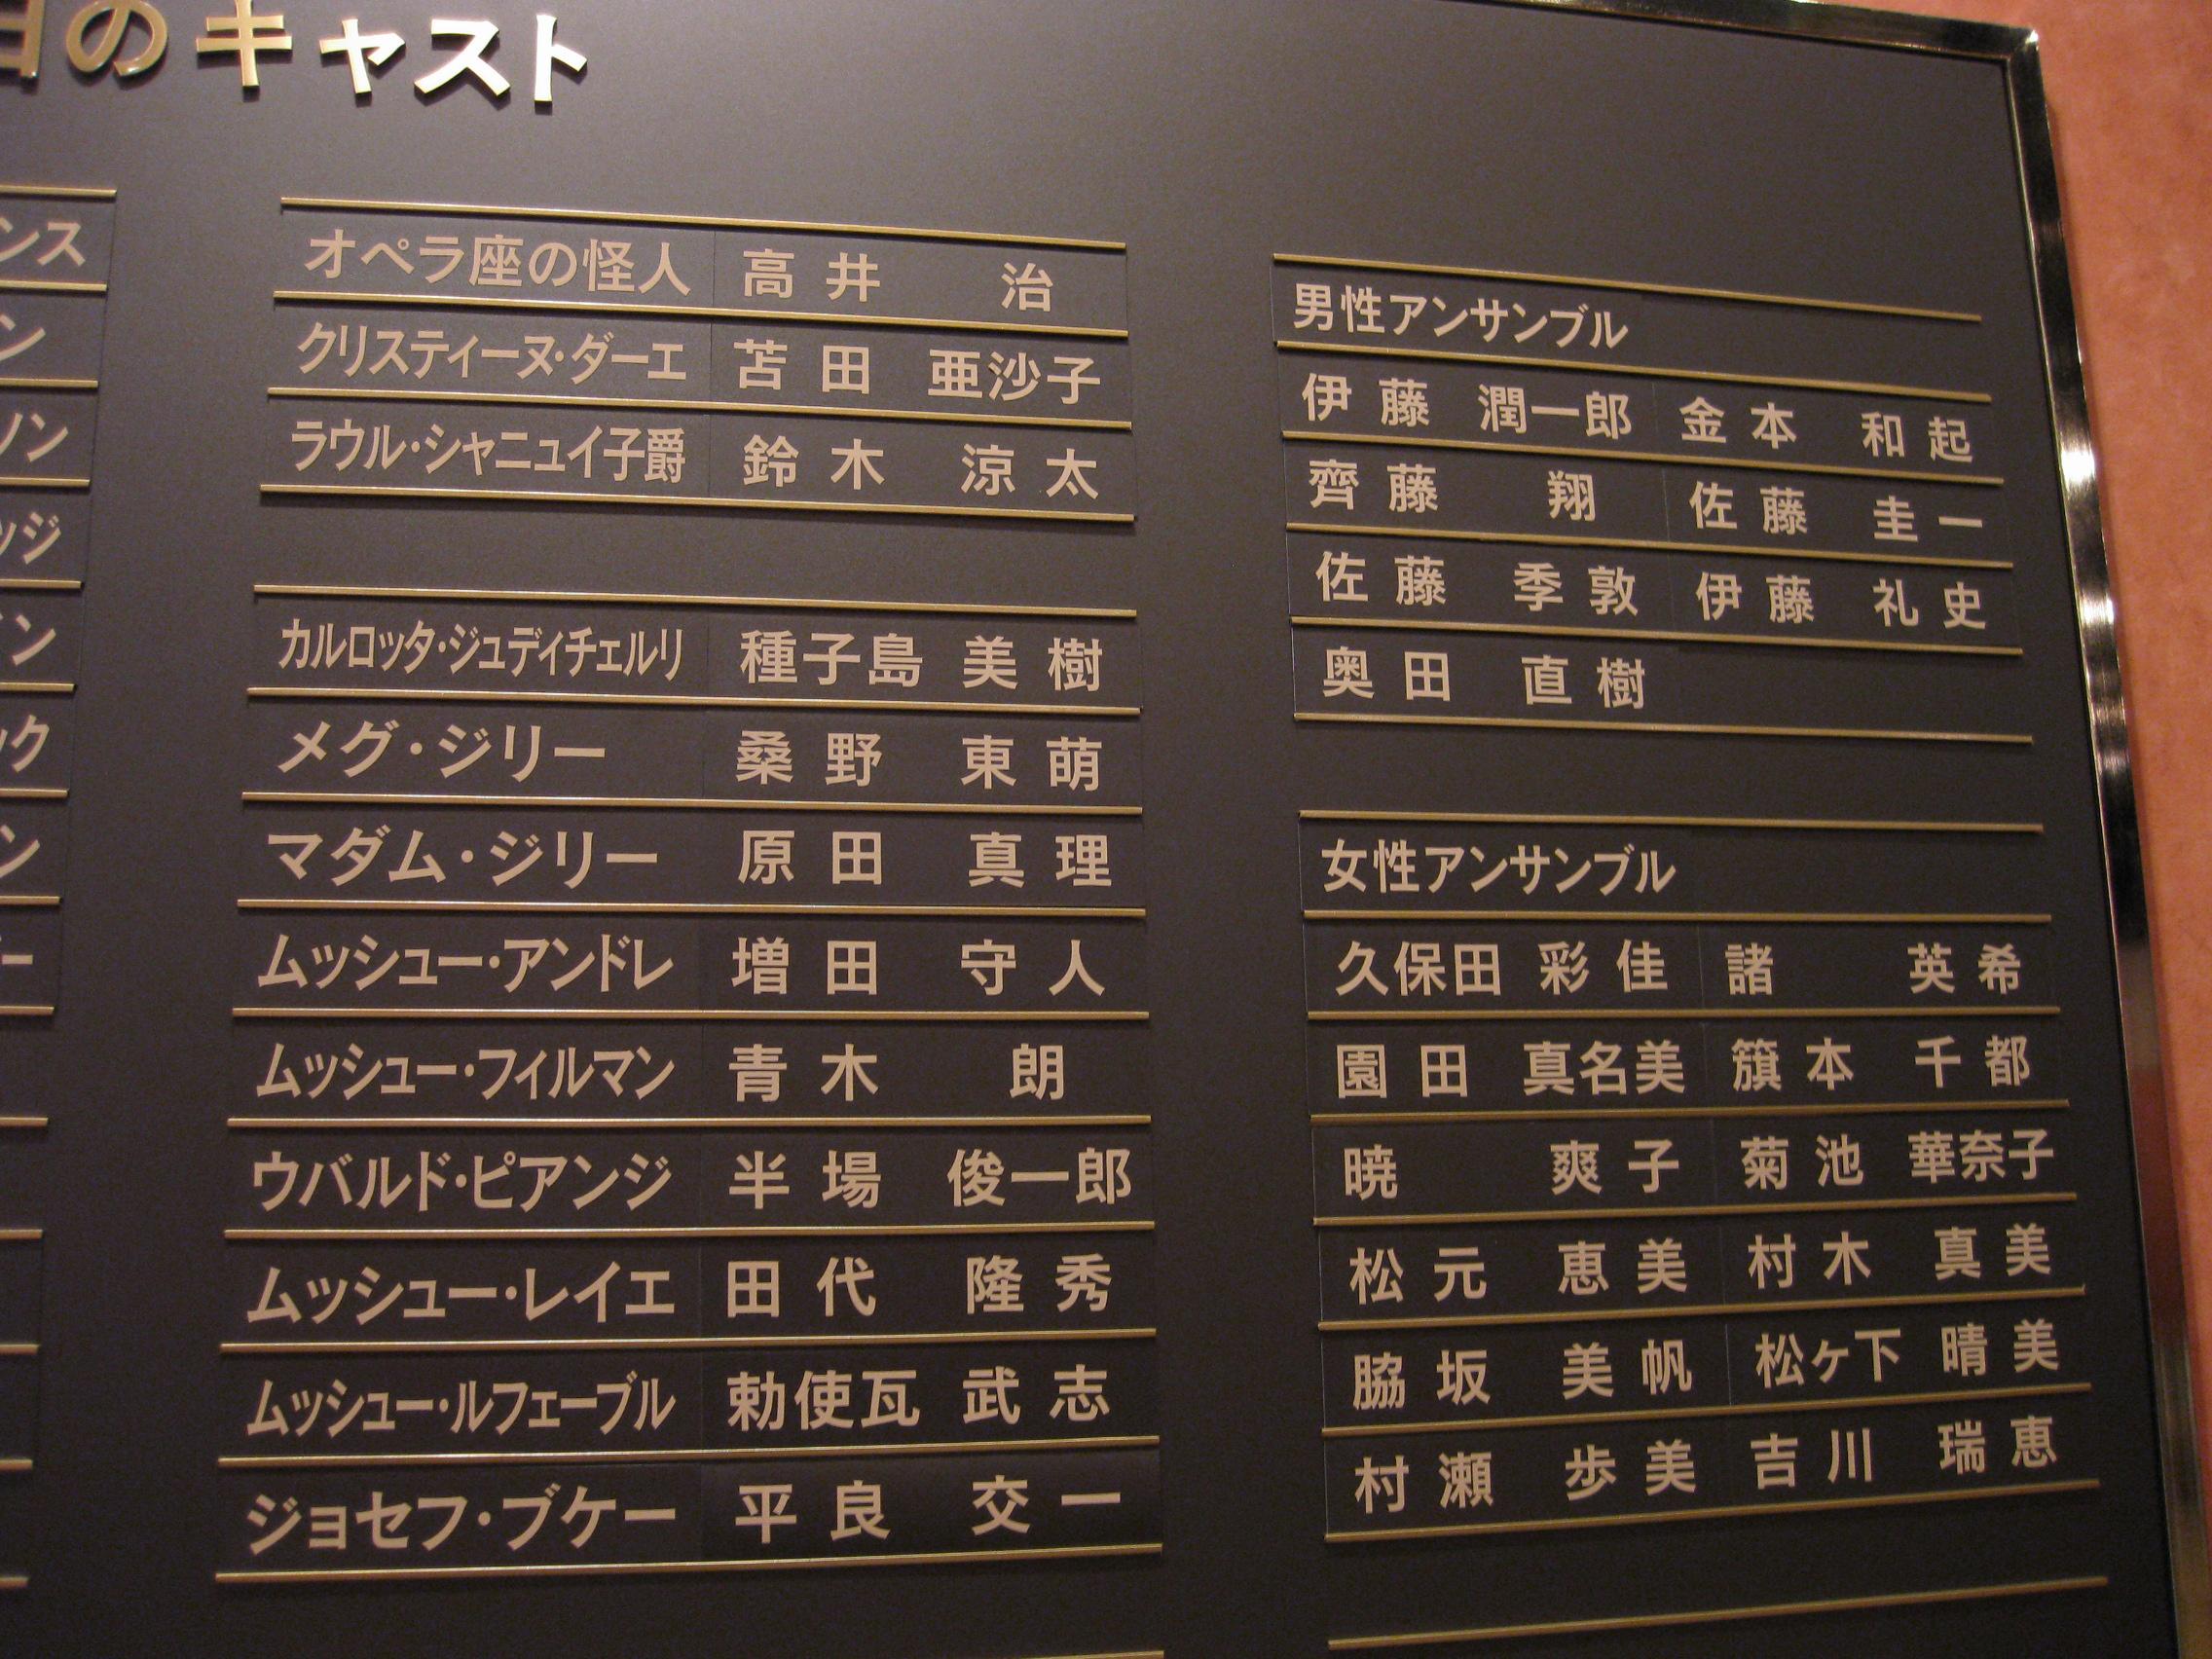 日のキャスト
ンス
ン
ソン
ッジ
ン
ック
ン
ー
オペラ座の怪人 高井 治
クリスティーヌ・ダーエ 苫田 亜沙子
ラウル・シャニュイ子爵 鈴木 涼太
カルロッタ・ジュディチェルリ 種子島 美樹
メグ・ジリー 桑野 東萌
マダム・ジリー 原田 真理
ムッシュー・アンドレ 増田 守人
ムッシュー・フィルマン 青木 朗
ウバルド・ピアンジ 半場 俊一郎
ムッシュー・レイエ 田代 隆秀
ムッシュー・ルフェーブル 勅使瓦 武志
ジョセフ・ブケー 平良 交一
男性アンサンブル
伊藤 潤一郎 金本 和起
齊藤 翔 佐藤 圭一
佐藤 季敦 伊藤 礼史
奥田 直樹
女性アンサンブル
久保田 彩佳 諸 英希
園田 真名美 籏本 千都
暁 爽子 菊池 華奈子
松元 恵美 村木 真美
脇坂 美帆 松ヶ下 晴美
村瀬 歩美 吉川 瑞恵